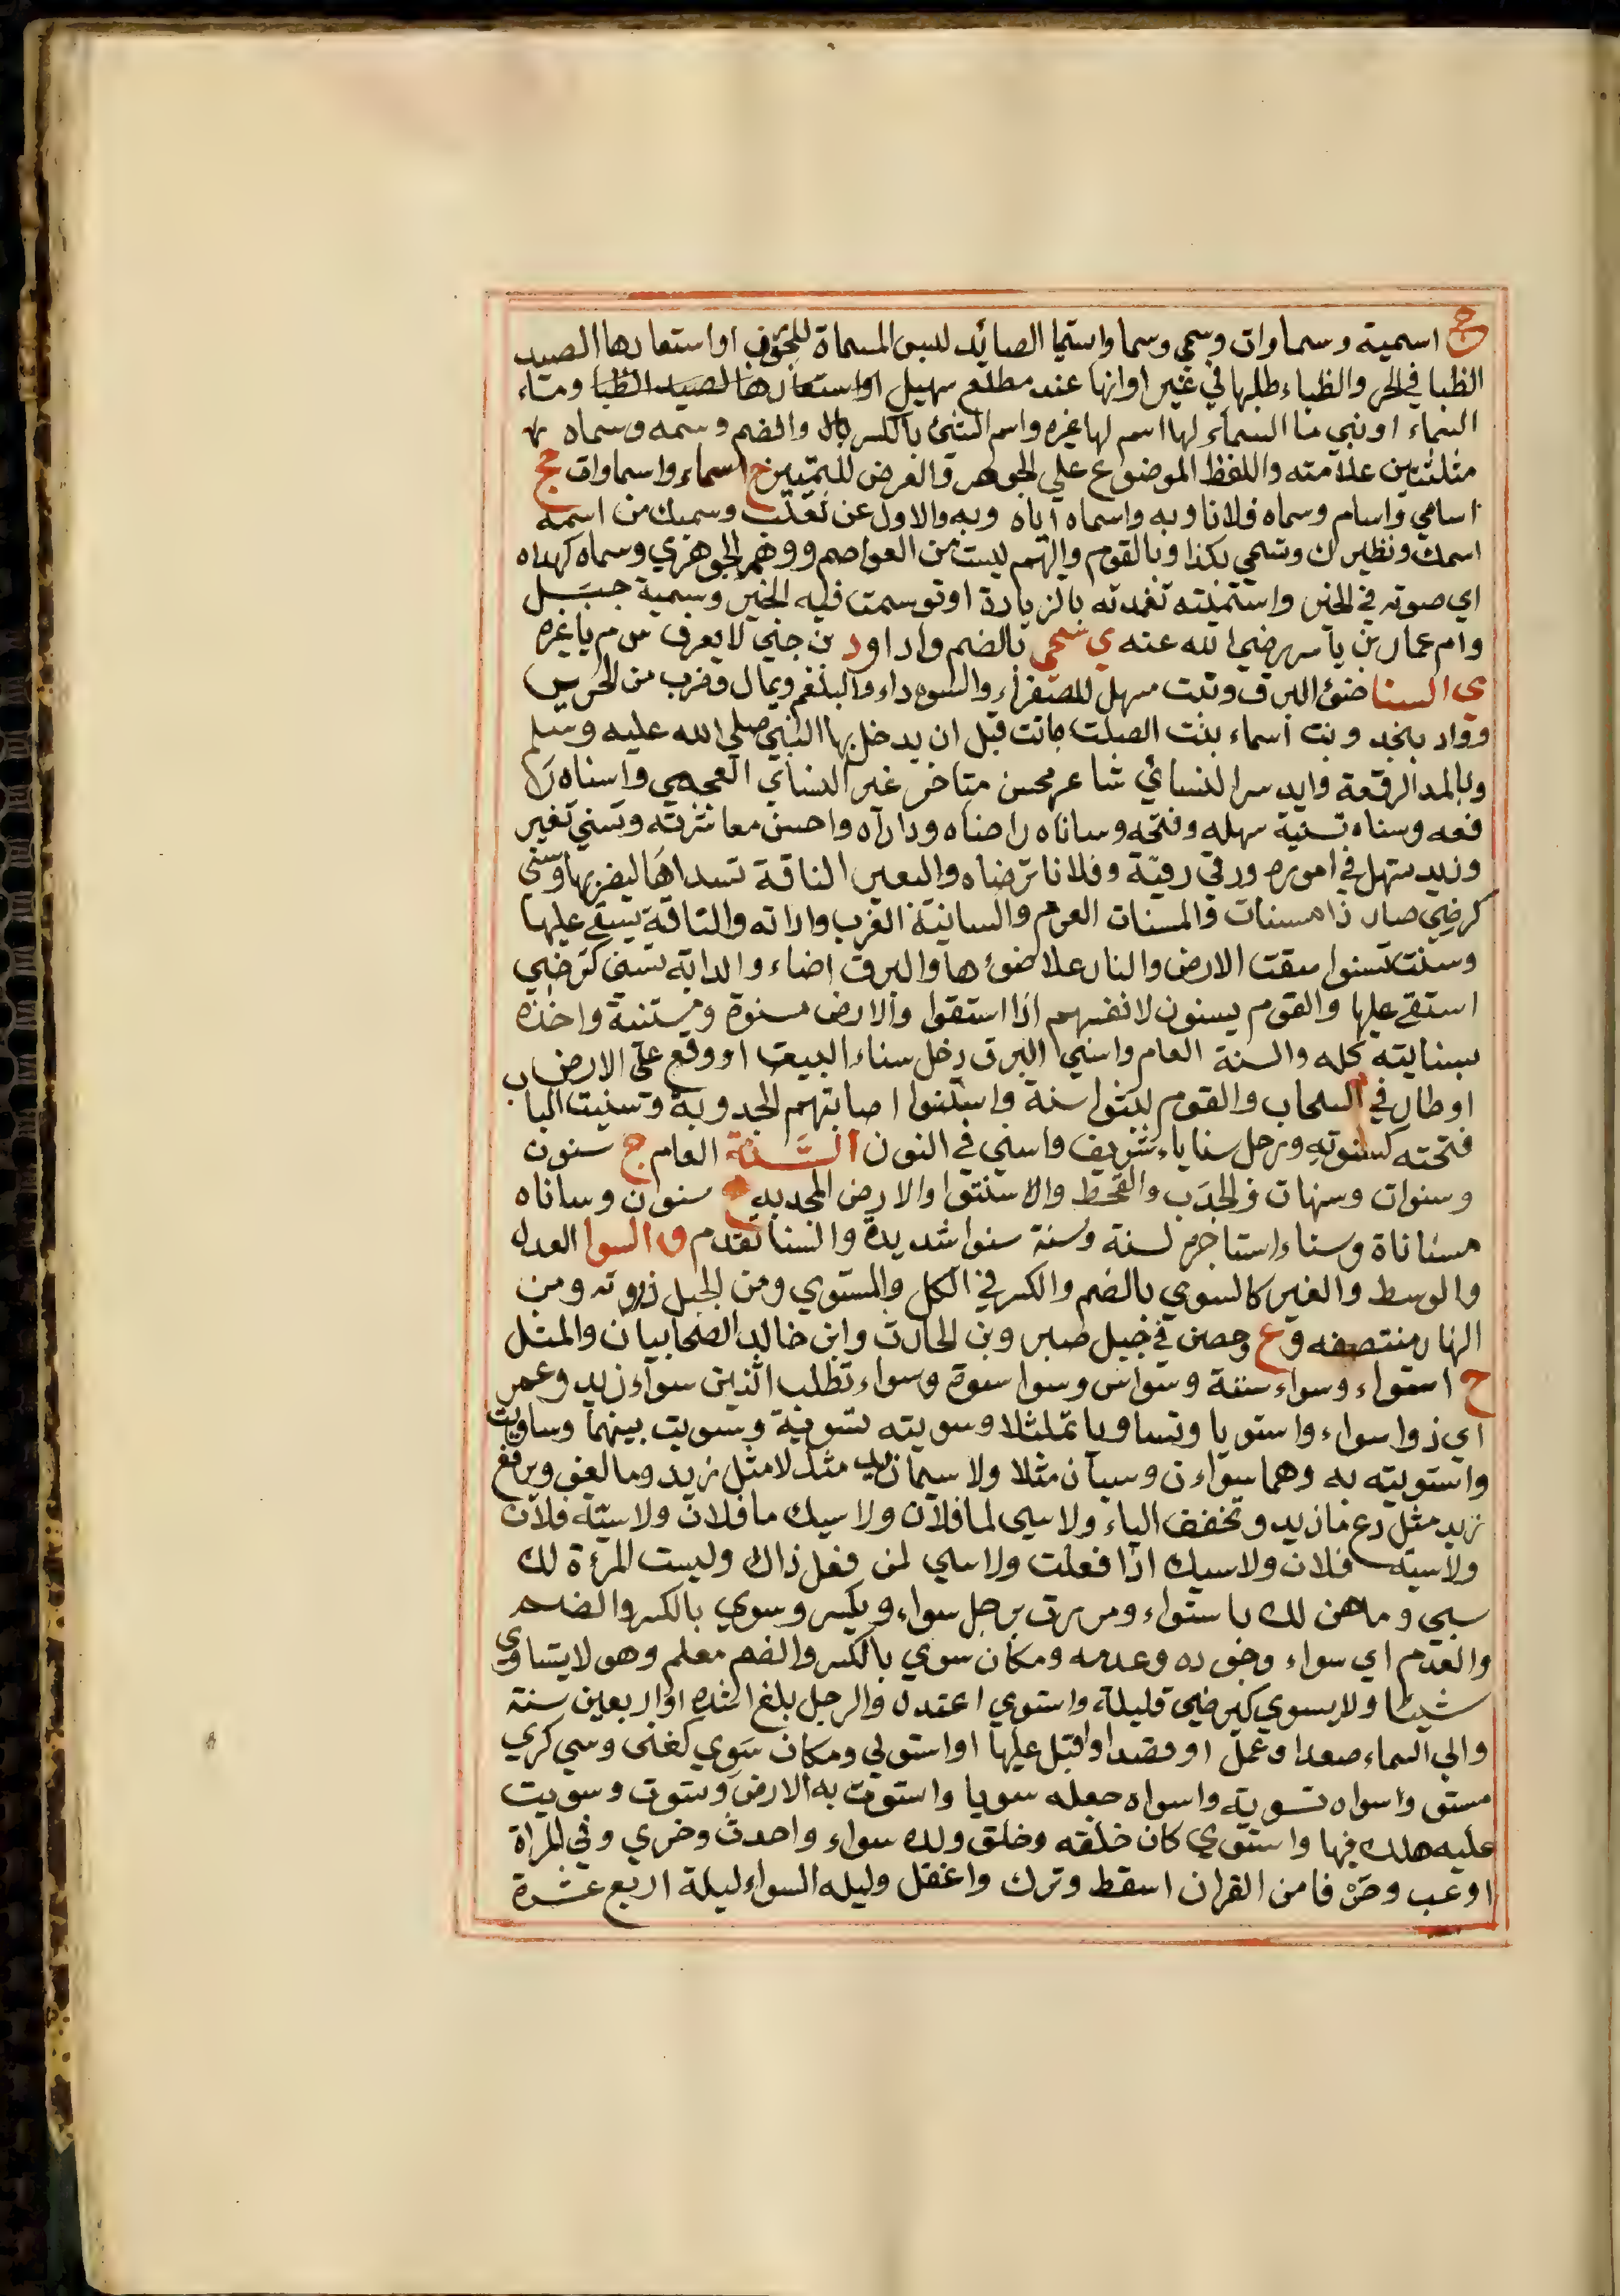 ج اسمية وسماوات وسمي وسما واستما الصائد لبس المسماة للجورب او استعارها الصيد
الظبا في الحر والظباء طلبها في غير اوانها عند مطلع سهيل او استعارها لصيد الظبا وماء
السماء او بني ما السماء لها اسم لها غيره واسم الشئ بالكسر والضم وسمه وسماه
مثلثين علامته واللفظ الموضوع علي الجوهر والعرض للتمييز ج اسماء واسماوات جج
اسامي واسام وسماه فلانا وبه واسماه اياه وبه والاول عن ثعلب وسميك من اسمه
اسمك ونظيرك وتسمي بكذا وبالقوم واليهم ليست من العواصم ووهم الجوهري وسماه كهداه
اي صوته في الخير واستميته تعمدته بالزيارة او توسمت فيه الخير وسمية جبل
وام عمار بن ياسر رضي الله عنه ي سمي بالضم واد اود بن جني لا يعرف س م يا غيره
ي السنا ضوئ البرق ونبت مسهل للصفراء والسوداء والبلغم ويمال وضرب من الحرير
وواد بنجد وبنت اسماء بنت الصلت ماتت قبل ان يدخل بها النبي صلي الله عليه وسلم
وبالمد الرفعة وايدسر السنائي شاعر محسن متاخر غير السناي العجمي واسناه ر
فعه وسناه تسنية سهله وفتحه وساناه راضاه وداراه واحسن معاشرته وتسني تغير
وزيد تسهل في اموره ورقي رقية وفلانا ترضاه والبعير الناقة تسداها ليضربها وسني
كرضي صار ذا مسنات والمسنات العرم والسانية الغرب واداته والناقة يسقي عليها
وسنت تسنوا سقت الارض والنار علا ضوئها والبرق اضاء والدابة تسنى كترضي
استقي عليها والقوم يسنون لانفسهم اذا استقوا والارض مسنوة ومستنية واخذه
بسنايته كله والسنة العام واسني البرق دخل سناء البيت او وقع علي الارض
او طار في السحاب والقوم لبثوا سنة واستنوا اصابتهم الجدوبة وتسنيت الباب
فتحته كسنوته ورجل سنايا شريف واسني في النون السنة العام ج سنون
وسنوات وسنهات والجدب والقحط والاسنتوا والارض المجدبه ج سنوان وساناه
مساناة وسناء استاجره لسنة وسنة سنوا شديدة والسنا تقدم ق السوا العدل
والوسط والغير كالسوي بالضم والكسر في الكل والمستوي ومن الجبل ذروته ومن
النهار منتصفه وع وحصن في جبل صبر وبن الحارث وابن خالد الصحابيان والمثل
ج اسواء وسواء سية وسواس وسوا سوة وسواء تطلب اثنين سواء زيد وعمر
اي ذوا سواء واستويا وتساويا تماثلا وسويته تسوية وسويت بينهما وساويت
واستويته به وهما سواءن وسيان مثلا ولا سيما زيد مثل لا مثل زيد وما لغو ويرفع
زيد مثل دع ما زيد وتخفف الياء ولا سي لما فلان ولا سيك ما فلان ولا سيه فلان
ولا سيه فلان ولا سيك اذا فعلت ولا سي لمن فعل ذاك وليست المرءة لك
سي وما هن لك باسواء ومررت برجل سواء ويكسر وسوي بالكسر والضم
والعدم اي سواء وجوده وعدمه ومكان سوي بالكسر والضم معلم وهو لا يساوي
شيئا ولا يسوي كيرضي قليلة واستوي اعتدل والرجل بلغ اشده او اربعين سنة
والي السماء صعد او عمل او قصد او اقبل عليها او استولي ومكان سوي كغنى وسي كزي
مستو واسواه تسوية واسواه جعله سويا واستوت به الارض وتسوت وسويت
عليه هلك فيها واستوي كان خلقه وخلق ولده سواء واحدث وخزي وفي المراة
اوعب وحرفا من القران اسقط وترك واغفل وليله السواء ليلة اربع عشرة